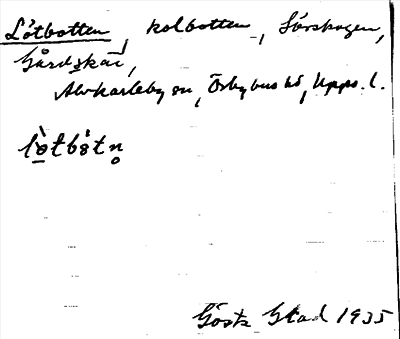 Lötbotten, kolbotten, Sörskogen,
Gårdskär,
Älvkarleby sn, Örbyhus hd, Upps. l.
lò̱tbòtn̥
Gösta Stad 1935